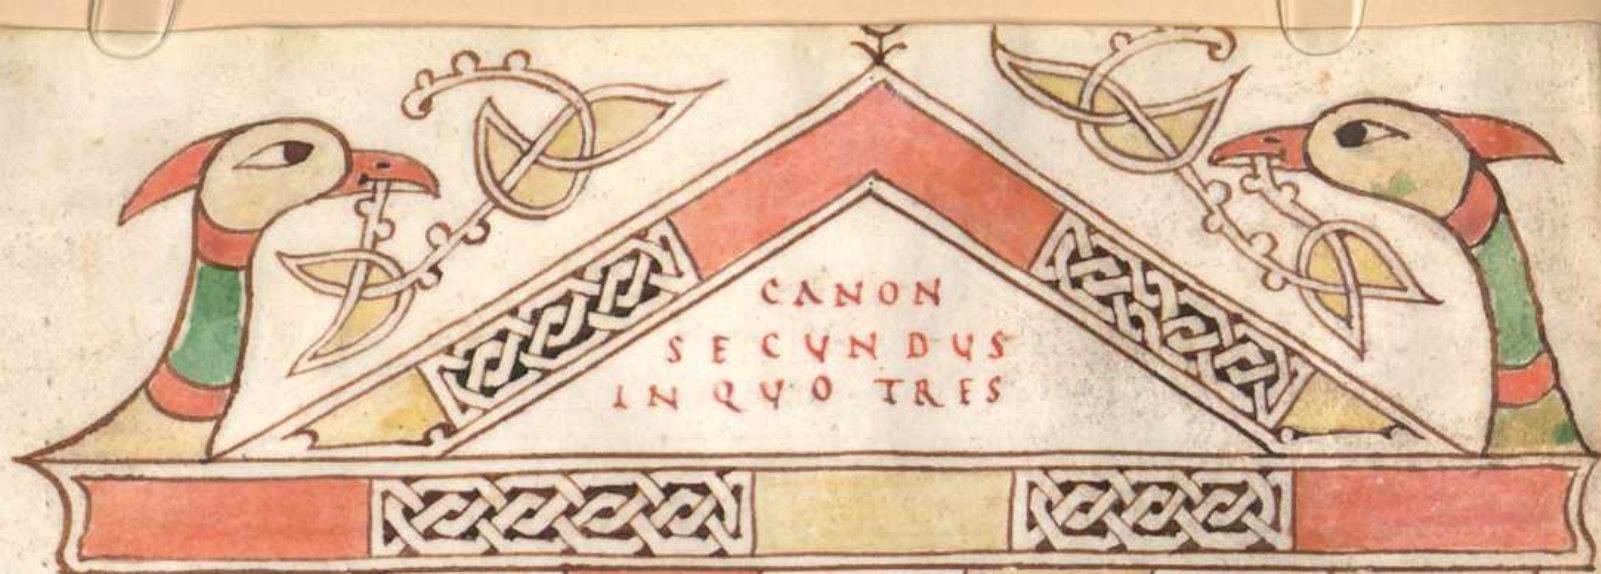 CANON
SECUNDUS
IN QUO TRES